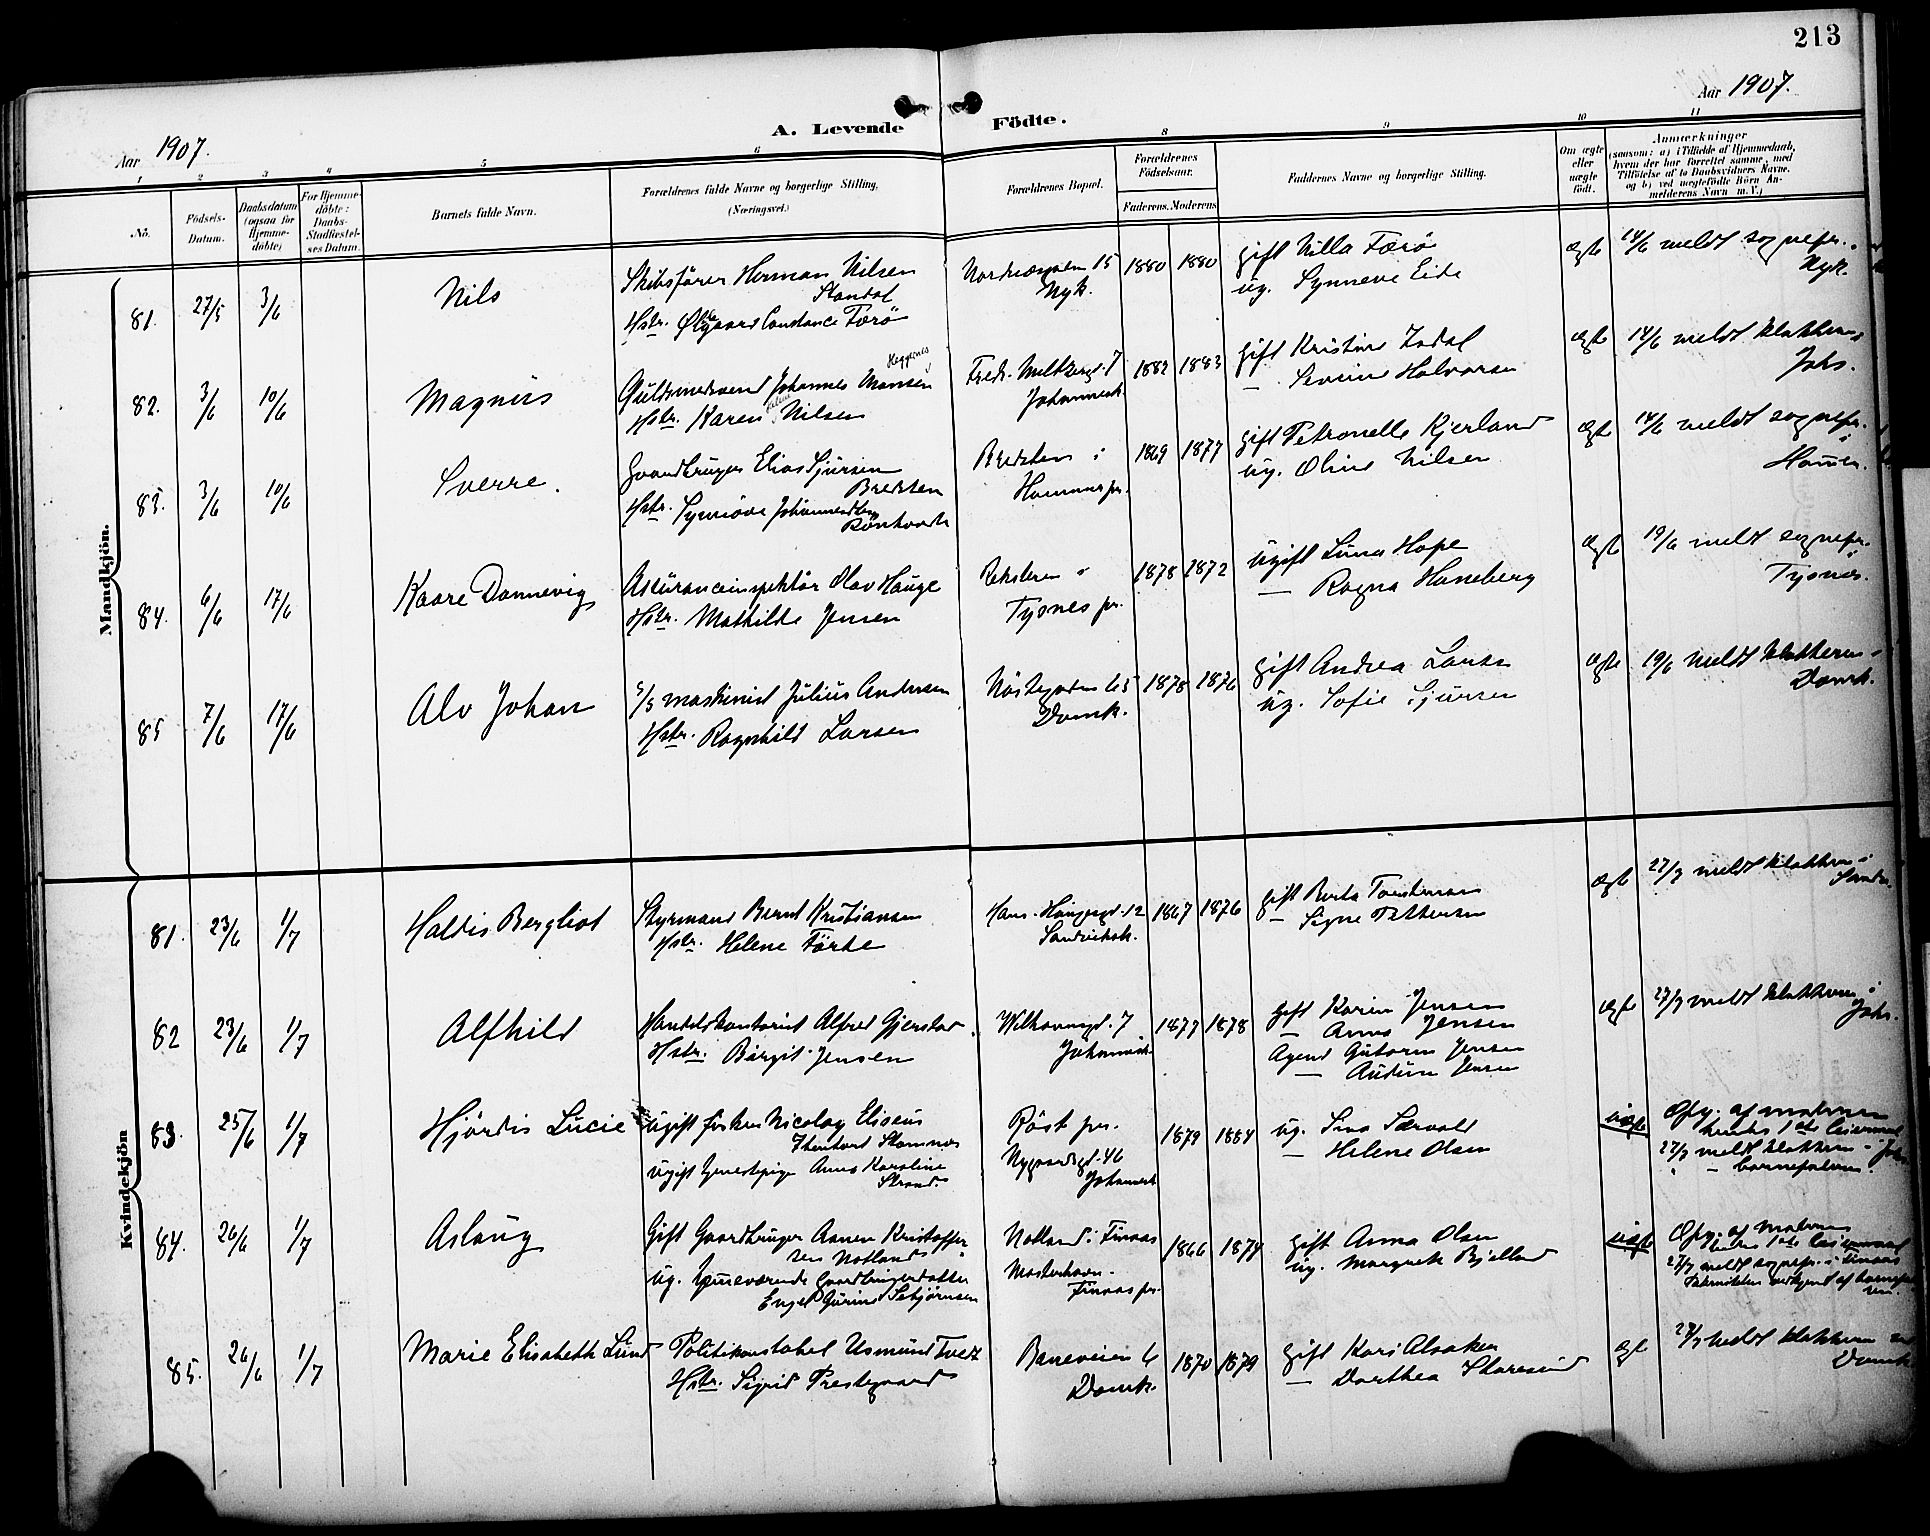 213
Aar 1907.
A. Levende Födte.
Aar 1907.
1 2 3 4 5 6 8 9 10 11
No.
Födsels-Datum.
Daabsdatum (ogsaa for Hjemme-döbte)
For Hjemme-döbte: Daabs-Stadfæstel-ses Datum.
Barnets fulde Navn.
Forældrenes fulde Navne og borgerlige Stilling, (Næringsvei.)
Forældrenes Bopæl.
Forældrenes Födselsaar.
Faderens. Moderens
Faddernes Navne og borgerlige Stilling.
Om ægte eller uægte födt.
Anmærkninger (saasom: a) i Tilfælde af Hjemmedaab, hvem der har forrettet samme, med Tilföielse af to Daabsvidners Navne. og b) ved uægtefödte Börn An-melderens Navn m. V.)
Mandkjön.
81. 27/5 3/6 Nils
Skibsförer Herman Nilsen
Standal
Hstr. Constance Færö
15
Nyk.
1880 1880
gift Nilla Færö
ug. Synneve Eide
ægte
14/6 meldt sognepr. i
Nyk.
82. 3/6 10/6 Magnus
Guldsmedsvend Johannes Monsen
Hstr. Karen Nilsen
Fredr. Meltzersgd. 7
Johannesk.
1882 1883
gift Kristine Indal
— Severine Halvorsen
ægte
14/6 meldt klokkeren i
Johs.
83. 3/6 10/6 Sverre.
Gaardbruger Elias Sjursen
Bredsten
Hstr. Synnöve Johannesdtr.
Bredsten i
Hammer pr.
1869 1877
gift Petronelle Kjerland
ug. Oline Nilsen
ægte
14/6 meldt sognepr. i
Hammer.
84. 6/6 17/6 Kaare Dannevig
Assuranceinspektör Olav Hauge
Hstr. Mathilde Jensen
Reksteren i
Tysnes pr.
1878 1872
ugift Luna Hope
— Ragna Haneberg
ægte
19/6 meldt sognepr. i
Tysnes.
85 7/6 17/6 Alv Johan
maskinist Julius Andersen
Hstr. Ragnhild Larsen
Nöstegaden 65
Domk.
1878 1876
gift Andrea Larsen
ug. Sofie Sjursen
ægte
19/6 meldt klokkeren i
Domk.
Kvindekjön
81. 23/6 1/7 Haldis Bergliot
Styrmand Bernt Kristiansen
Hstr. Helene Förde
Hans Haugesgd. 12
Sandviksk.
1867 1876
gift Berta Torstensen
— Signe Pettersen
ægte
27/7 meldt klokkeren i
Sandv.
82 23/6 1/7 Alfhild
Handelskontorist Alfred Gjerstad
Hstr. Birgit Jensen
Welhavensgd. 7
Johannesk.
1877 1878
gift Karen Jensen
— Anna Jensen
Agent Guttorm Jensen
— Audun Jensen
ægte
27/7 meldt klokkeren i
Johs.
83. 25/6 1/7 Hjördis Lucie
ugift fisker Nicolay Eliseus
Stamnes
ugift tjenestepige Anna Karoline
Strand.
Röst pr.
Nygaardsgd. 46
Johannesk.
1879 1884
ug. Sina Særvold
— Helene Olsen
uægte
Opg. af moderen
hendes 1ste leiermaal
27/7 meldt klokkeren i Johs.
" — barnefaderen.
84. 26/6 1/7 Aslaug
Gift Gaardbruger Aanen Kristoffer
sen Notland
ug. hjemmeværende Gaardbrugerdatter
Engel Gurine Sebjörnsen
Notland i Finaas
Mosterhavn.
Finaas pr.
1866 1874
gift Anna Olsen
ug. Margrete Bjelland
uægte
Opg. af moderen
hendes 1ste leiermaal
27/7 meldt sognepr. i Finaas
85. 26/6 1/7 Marie Elisabeth Lund
Politikonstabel Asmund Tveit
Hstr. Sigrid Prestegaard
Baneveien 6
Domk.
1870 1879
gift Kari Alsaker
— Dorthea Skaresund
ægte
27/7 meldt klokkeren ved
Domk.